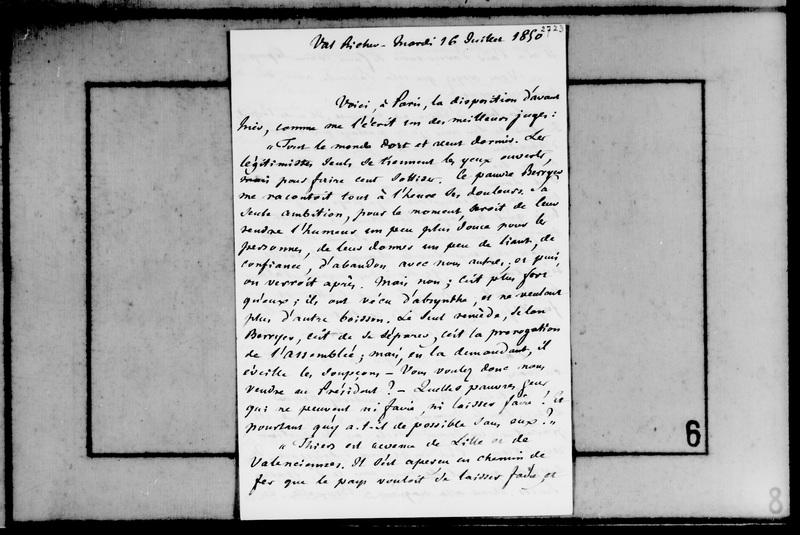 2723
Val Richer - Mardi 16 Juillet 1850
Voici, à Paris, la disposition d'avant
hier, comme me l'écrit un des meilleurs juges :
"Tout le monde dort et veut dormir. Les
légitimistes seuls se tiennent les yeux ouverts,
mais pour faire cent sottises. Ce pauvre Berryer
me racontoit tout à l'heure ses douleurs. Sa
seule ambition, pour le moment, seroit de leur
rendre l'humeur un peu plus douce pour les
personnes, de leur donner un peu de liant, de
confiance, d'abandon avec nous autres; et puis,
on verroit après. Mais non; c'est plus fort
qu'eux; ils ont vécu d'absynthe, et ne veulent
plus d'autre boisson. Le seul remède, selon
Berryer, c'est de se séparer, c'est la prorogation
de l'Assemblée; mais, en la demandant, il
éveille les soupçons - Vous voulez donc nous
vendre au Président ? - Quelles pauvres gens
qui ne peuvent ni faire, ni laisser faire ! Et
pourtant qu'y a-t-il de possible sans eux ? "
"Thiers est revenu de Lille et de
Valenciennes. Il s'est aperçu en chemin de
fer que le pays vouloit se laisser faire, et
6
8